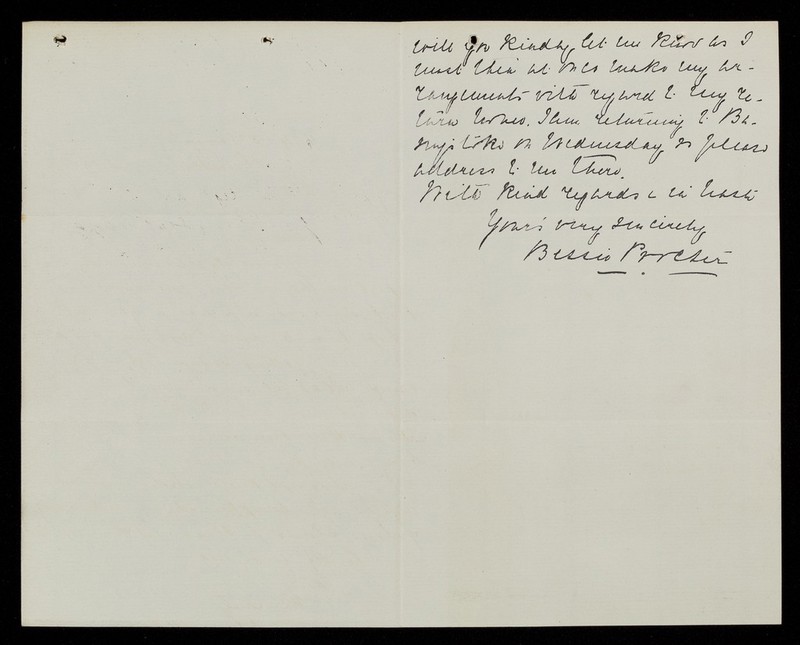 will you kindly let me know as I
must then at once make my ar-
rangements with regard to my re-
turn home. I am returning to Ba-
singstoke on Wednesday so please
address to me there.
With kind regards & in haste
Yours very sincerely
Bessie Procter